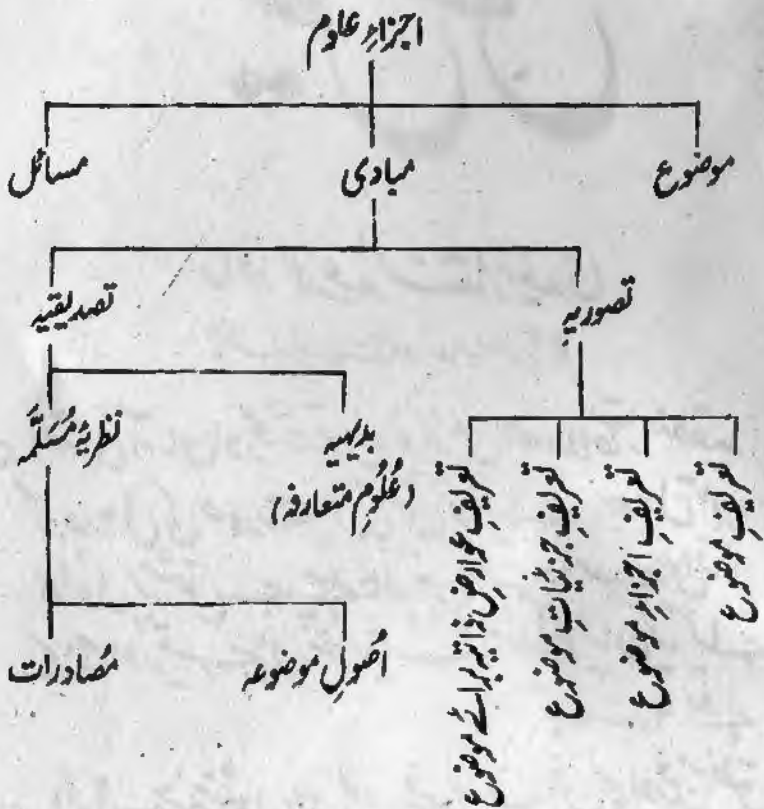 اجزاءِ علوم
موضوع
مبادی
مسائل
تصوریہ
تصدیقیہ
تعریفِ موضوع
تعریفِ اجزاءِ موضوع
تعریفِ جزئیاتِ موضوع
تعریفِ عوارضِ ذاتیہ برائے موضوع
بدیہیہ
(عُلُومِ متعارفہ)
نظریۂ مُسَلَّمہ
اُصُولِ موضوعہ
مُصادرات